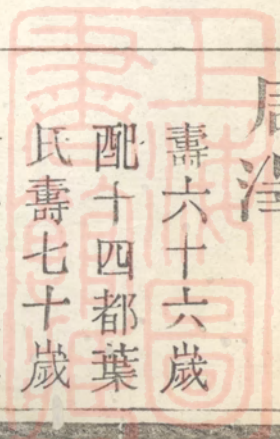 壽六十六歲
配十四都葉
氏壽七十歲